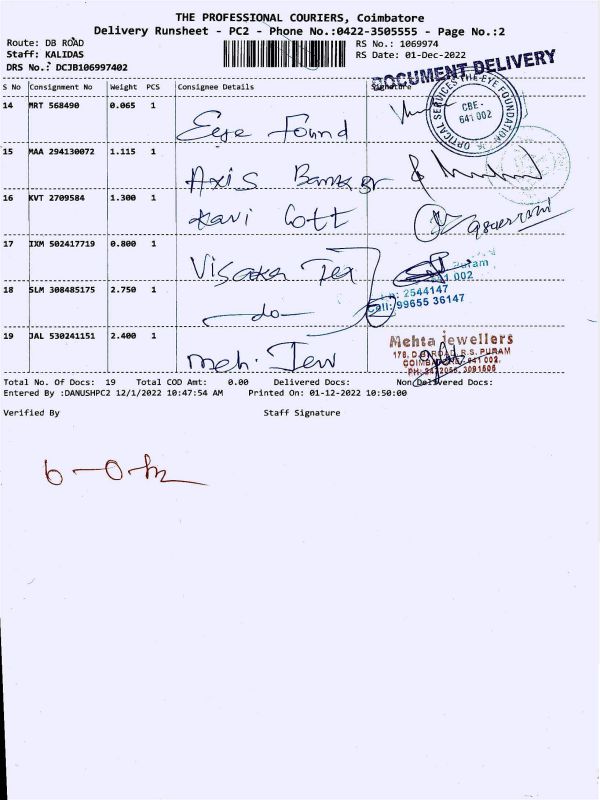 THE PROFESSIONAL COURIERS, Coimbatore
Delivery Runsheet - PC2 - Phone No.:0422-3505555 - Page No.:2
Route: DB ROAD
Staff: KALIDAS
DRS No.: DCJB106997402
RS No.: 1069974
RS Date: 01-Dec-2022
DOCUMENT DELIVERY
S No Consignment No Weight PCS Consignee Details Signature
14 MRT 568490 0.065 1 Eye Found
OPTICAL SERVICES THE EYE FOUNDATION
CBE -
641 002
15 MAA 294130072 1.115 1 Axis Bank
16 KVT 2709584 1.300 1 Kavi Cott
17 IXM 502417719 0.800 1 Visaka Tex
Puram
002
2544147
Cell: 99655 36147
18 SLM 308485175 2.750 1 -do-
19 JAL 530241151 2.400 1 meh. Jew
Mehta jewellers
R.S. PURAM
641 002.
3091506
Total No. Of Docs: 19 Total COD Amt: 0.00 Delivered Docs: Non Delivered Docs:
Entered By :DANUSHPC2 12/1/2022 10:47:54 AM Printed On: 01-12-2022 10:50:00
Verified By Staff Signature